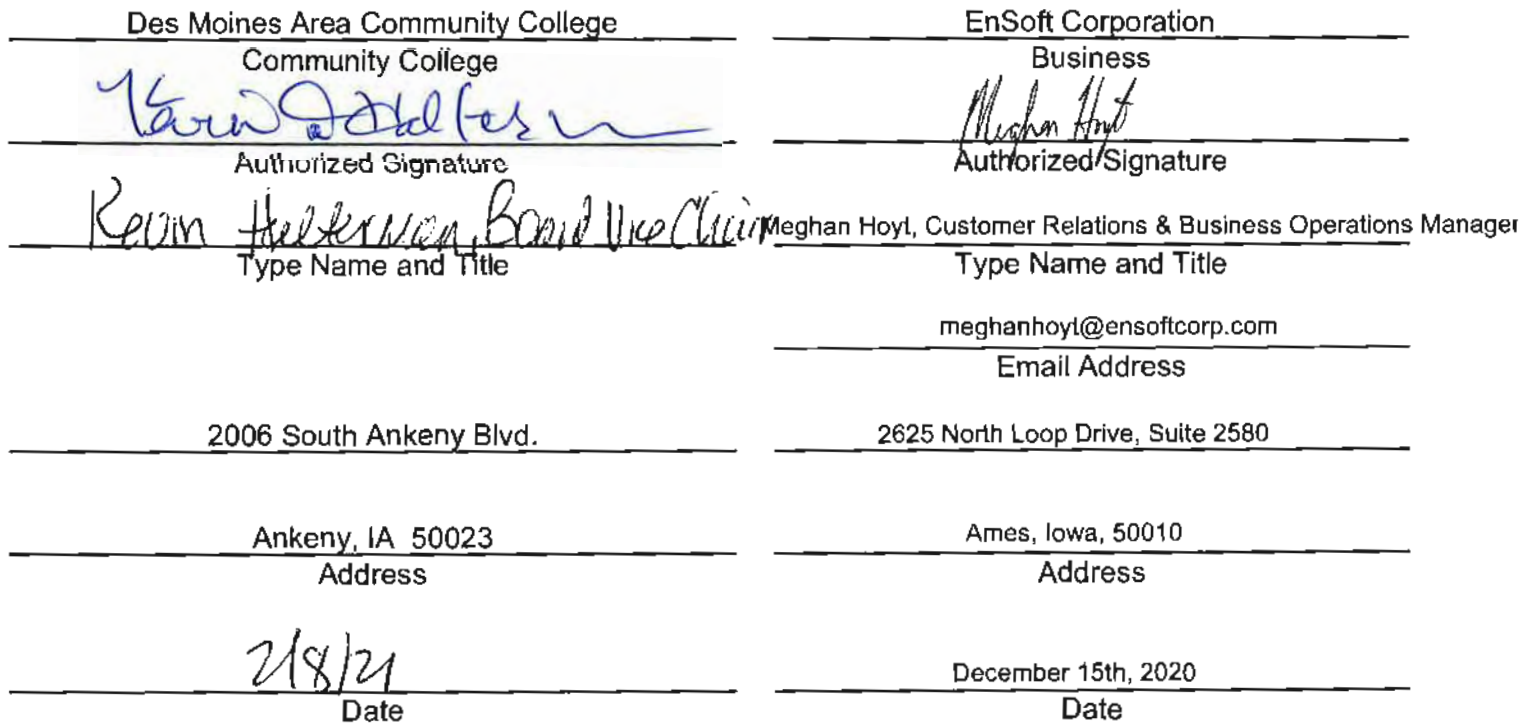 Des Moines Area Community College
Community College
Authorized Signature
Kevin Halterman, Board Vice Chair
Type Name and Title
2006 South Ankeny Blvd.
Ankeny, IA 50023
Address
2/8/21
Date
EnSoft Corporation
Business
Meghan Hoyt
Authorized Signature
Meghan Hoyt, Customer Relations & Business Operations Manager
Type Name and Title
meghanhoyt@ensoftcorp.com
Email Address
2625 North Loop Drive, Suite 2580
Ames, Iowa, 50010
Address
December 15th, 2020
Date